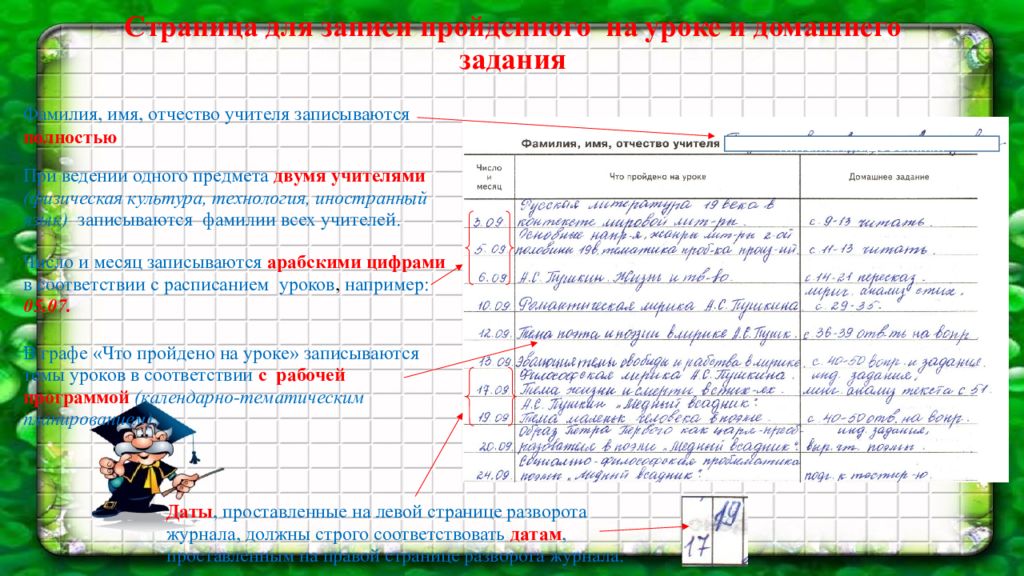 Страница для записи пройденного на уроке и домашнего
задания
Фамилия, имя, отчество учителя записываются
полностью
При ведении одного предмета двумя учителями
(физическая культура, технология, иностранный
язык) записываются фамилии всех учителей.
Число и месяц записываются арабскими цифрами
в соответствии с расписанием уроков, например:
05.07.
В графе «Что пройдено на уроке» записываются
темы уроков в соответствии с рабочей
программой (календарно-тематическим
планированием)
Даты, проставленные на левой странице разворота
журнала, должны строго соответствовать датам,
проставленным на правой странице разворота журнала.
Фамилия, имя, отчество учителя
Число и месяц Что пройдено на уроке Домашнее задание
Русская литература 19 века в
3.09 контексте мировой лит-ры. с. 9-13 читать.
Основные напр-я, жанры лит-ры 2-ой
5.09 половины 19в, тематика проб-ка произ-ий. с. 11-13 читать.
6.09 А.С. Пушкин. Жизнь и тв-во. с 14-21 пересказ.
лирич. анализ стих.
10.09 Романтическая лирика А.С. Пушкина с. 29-35.
12.09. Тема поэта и поэзии в лирике А.С. Пушк. с 36-39 отв-ть на вопр.
13.09 свободы и рабства в лирике с. 40-50 вопр. и задания.
Философская лирика А.С. Пушкина. инд задания,
17.09 Тема жизни и смерти анализ текста с 51.
А.С. Пушкин „Медный всадник".
19.09 Тема маленьк человека в поэме. с. 40-50 отв. на вопр.
Образ Петра Первого как царя-преоб- инд. задания,
20.09 разователя в поэме „Медный всадник". выр. чт. поэмы.
Социально-философская проблематика
24.09 поэмы „Медный всадник". подг. к тестир-ю.
19
17